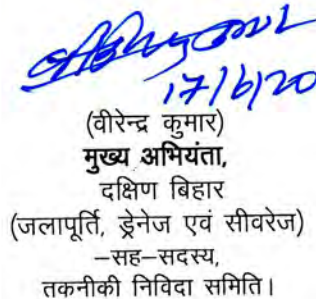 17/6/20
(वीरेन्द्र कुमार)
मुख्य अभियंता,
दक्षिण बिहार
(जलापूर्ति, ड्रेनेज एवं सीवरेज)
–सह–सदस्य,
तकनीकी निविदा समिति।